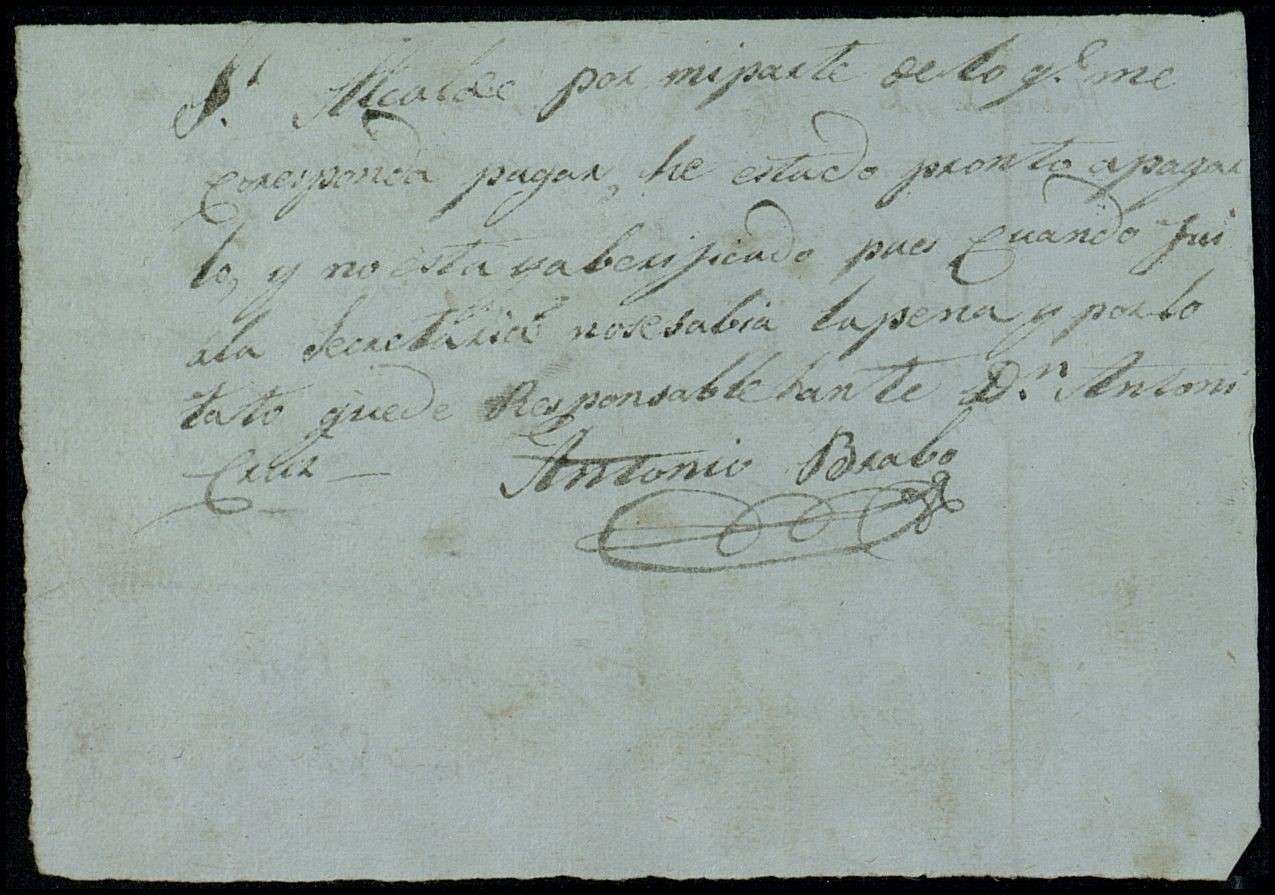 S.r Alcalde por miparte de lo q.e me
coresponda pagar, he estado pronto apagar
lo, y no esta ya berificado pues cuando fui
ala Secretaria nosesabia lapena y por lo
tato quede Responsable ante D.n Antoni
Cruz Antonio Brabo